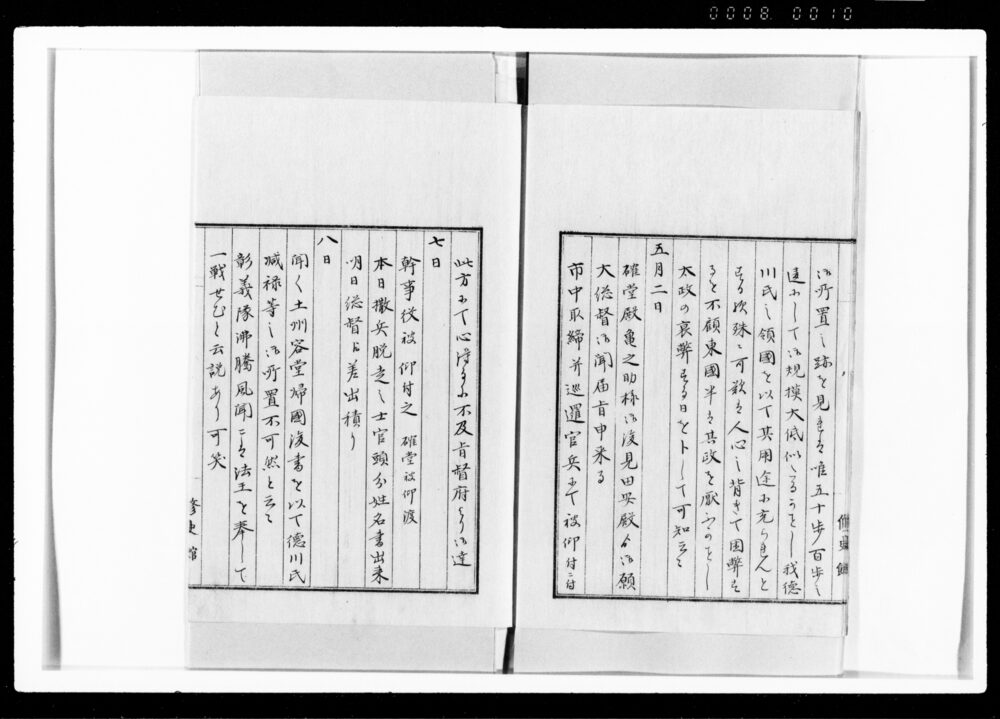 0008 0010
御所置之跡を見れは唯五十歩百歩之
違にして御規模大低似たるかことし我徳
川氏之領國を以て其用途に充られんと
する次殊ニ可歎は人心之背きて困弊す
るを不顧東國半は其政を厭ふかことし
太政の衰弊する日をトして可知云々
五月二日
確堂殿亀之助様御後見田安殿ゟ御願
大総督御聞届旨申来る
市中取締并巡邏官兵にて被仰付ニ付
修史館
此方にて心得るに不及旨督府より御達
七日
幹事役被仰付之 確堂被仰渡
本日撤兵脱走之士官頭分姓名書出来
明日総督ゟ差出積り
八日
聞く土州容堂帰國後書を以て徳川氏
減禄等之御所置不可然と云々
彰義隊沸騰風聞ニは法王を奉して
一戦せむと云説あり可笑
修史館